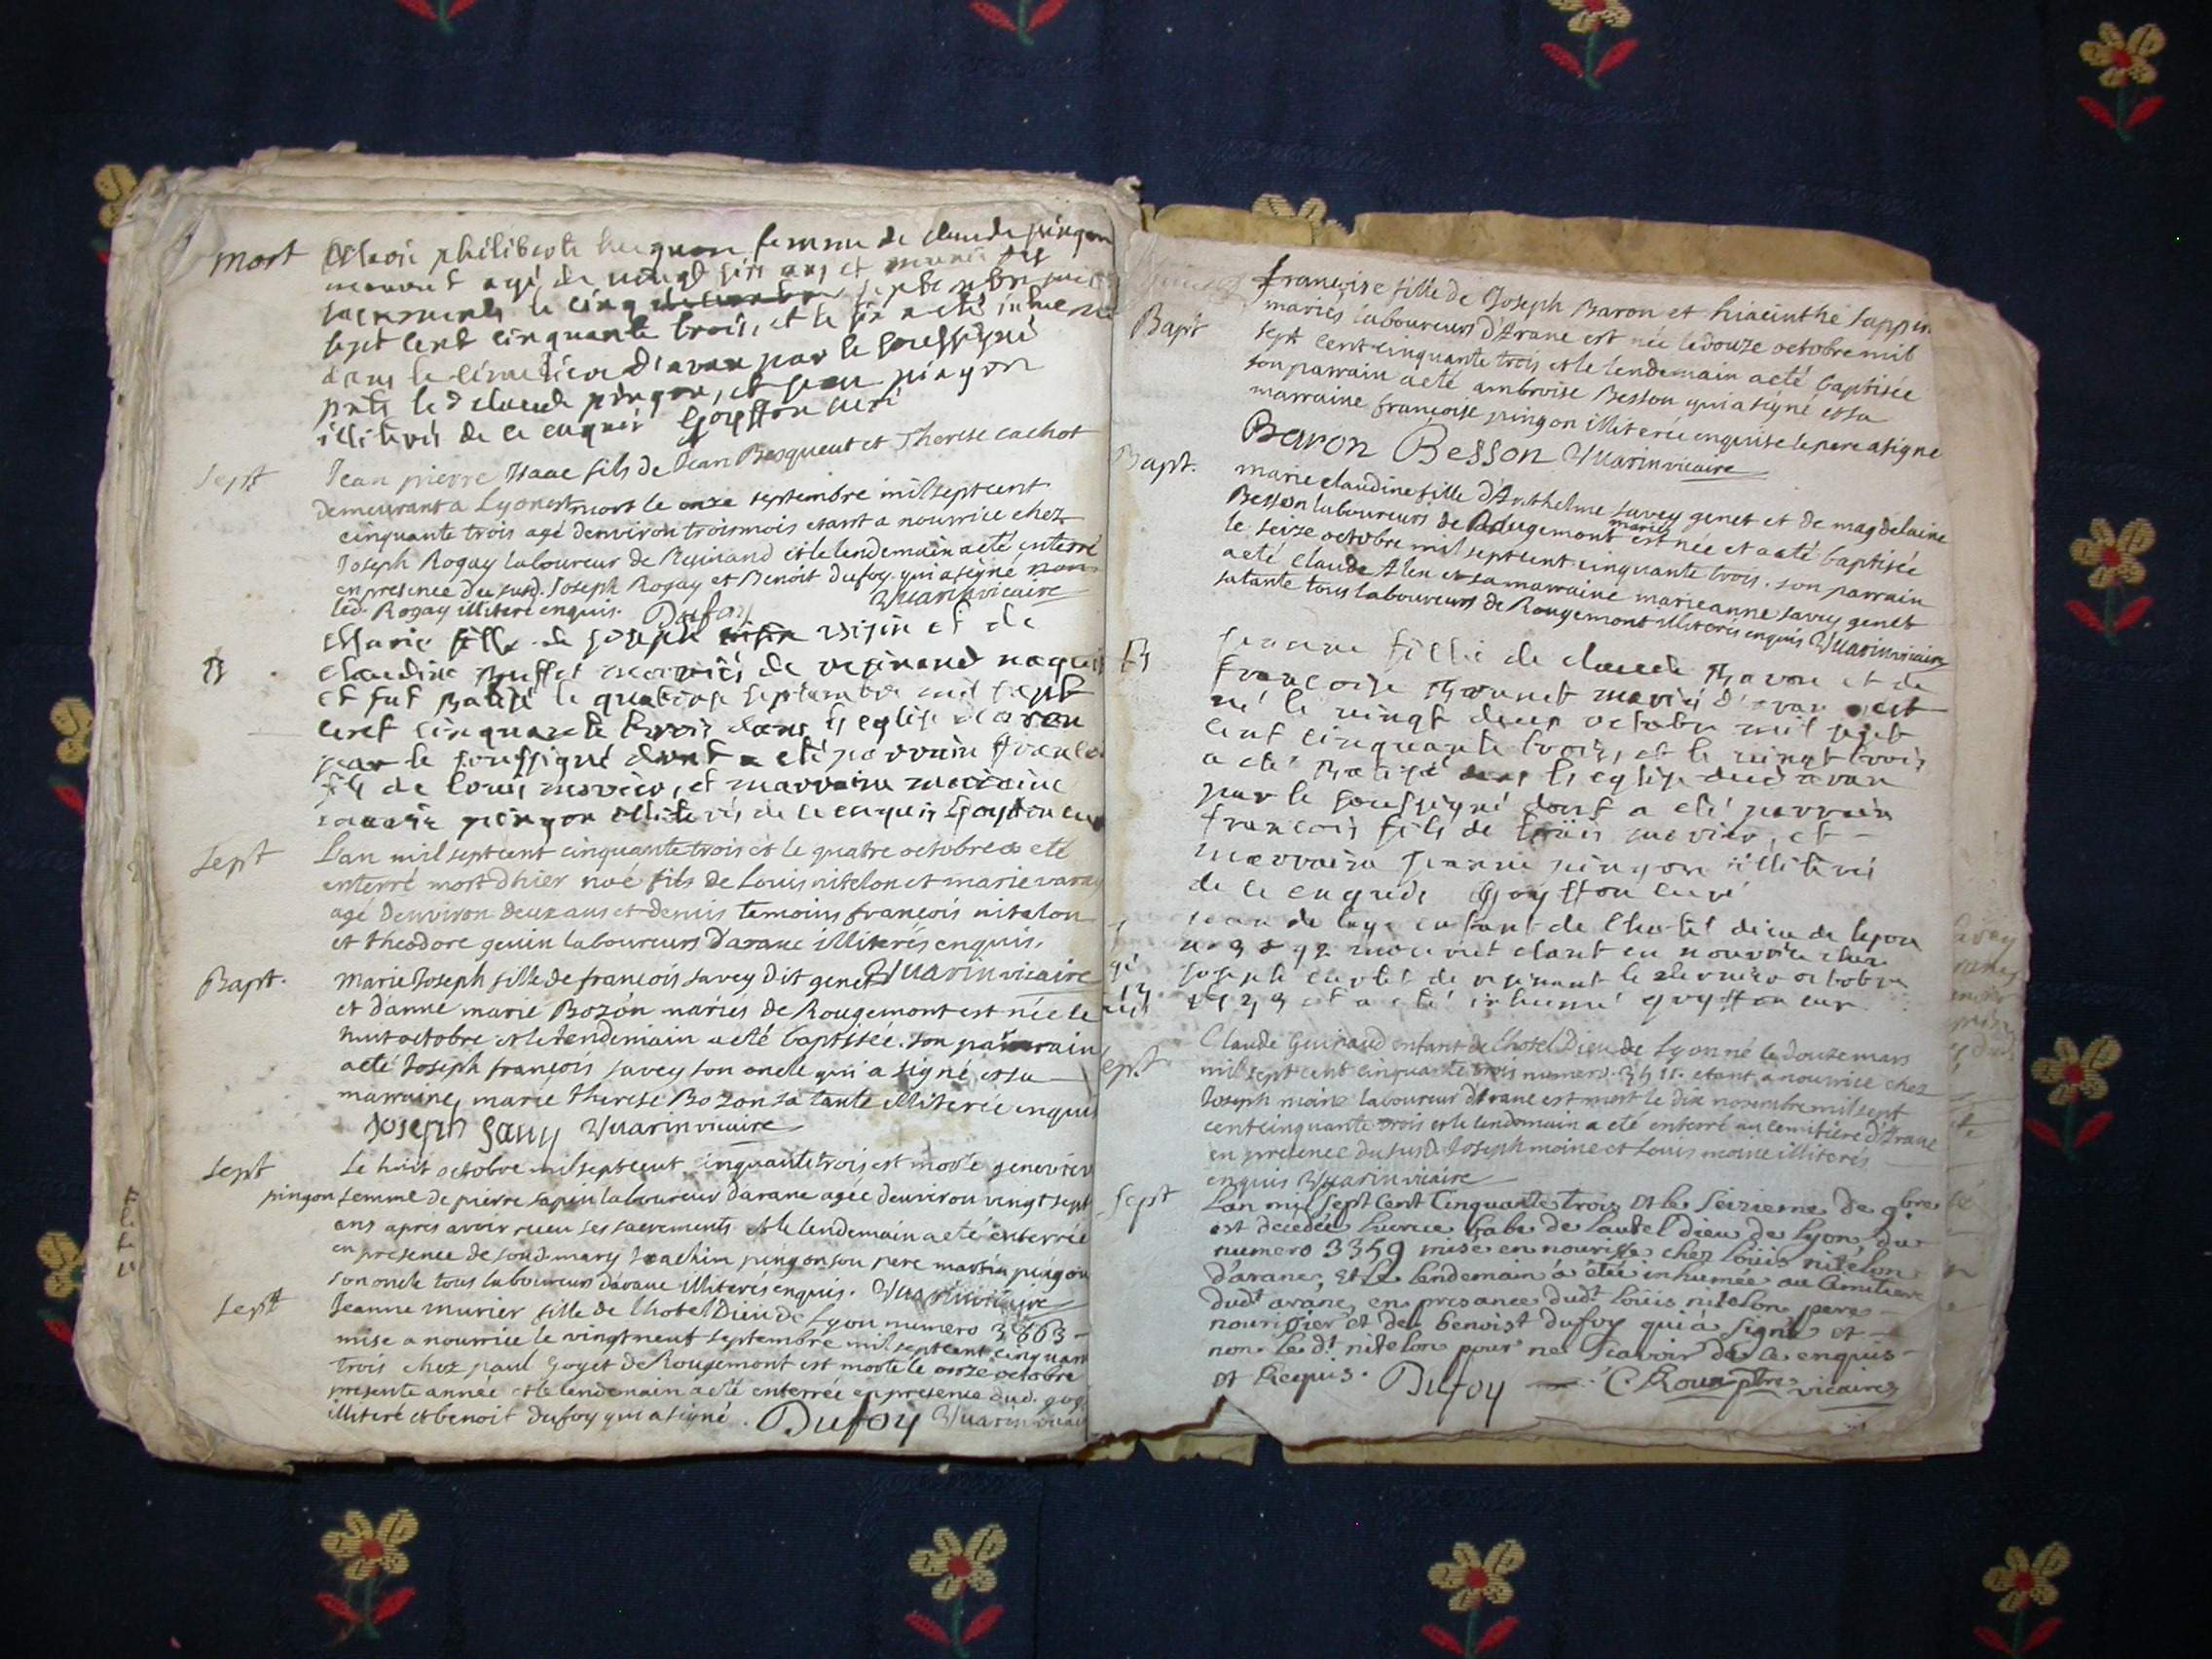 mort
Marie philiberte huguon femme de claude pingon
mourut agé de vingt six ans et munie des
sacrements le cinq septembre mil
sept cent cinquante trois, et le six a eté inhumé
dans le cimetiere d'aran par le soussigné
pnts led claude pingon, et jean pingon
illiterés de ce enquis Goyffon curé
Sept
Jean pierre Isaac fils de Jean Besqueut et Therese cachot
demeurant a Lyon est mort le onze septembre mil sept cent
cinquante trois agé denviron trois mois etant a nourrice chez
Joseph Rogay laboureur de Resinand et le lendemain a eté enterré
en presence du susd. Joseph Rogay et Benoit dufoy qui a signé non
led. Rogay illiteré enquis. Dufoy Wuarin vicaire
B
Marie fille de joseph visin et de
claudine Buffet mariés de resinand naquit
et fut Batisé le quatorze septembre mil sept
cent cinquante trois dans l'eglise d'aran
par le soussigné dont a eté parrain francois
fils de louis movier, et marraine
pingon illiterés de ce enquis Goyffon curé
Sept
L'an mil sept cent cinquante trois et le quatre octobre a eté
enterré mort d'hier noé fils de Louis nitelon et marie varay
agé denviron deux ans et demis temoins françois nitelon
et theodore genin laboureurs d'arane illiterés enquis.
Wuarin vicaire
Bapt.
Marie Joseph fille de françois savey dit genet
et d'anne marie Bozon mariés de Rougemont est née le
huit octobre et le lendemain a eté baptisée. son parrain
a eté Joseph françois savey son oncle qui a signé et sa
marraine, marie therese Bozon sa tante illiterée enquis
Joseph Savy Wuarin vicaire
Sept
Le huit octobre mil sept cent cinquante trois est morte genevieve
pingon femme de pierre sapin laboureur d'arane agée denviron vingt sept
ans apres avoir receu ses sacrements et le lendemain a eté enterrée
en presence de sond. mary Joachim pingon son pere martin pingon
son oncle tous laboureurs d'arane illiterés enquis. Wuarin vicaire
Sept
Jeanne murier fille de lhotel Dieu de Lyon numero 3863
mise a nourrice le vingt neuf septembre mil sept cent cinquante
trois chez paul goyet de Rougemont est morte le onze octobre
presente année et le lendemain a eté enterrée en presence dud. goy
illiteré et benoit dufoy qui a signé. Dufoy Wuarin vicaire
Bapt
françoise fille de Joseph Baron et hiacinthe sappin
mariés laboureurs d'Arane est née le douze octobre mil
sept cent cinquante trois et le lendemain a eté baptisée
son parrain a eté ambroise Besson qui a signé et sa
marraine françoise pingon illiterée enquise le pere a signé
Baron Besson Wuarin vicaire
Bapt.
marie claudine fille d'Anthelme savey genet et de magdelaine
Besson laboureurs de Rougemont mariés est née et a eté baptisée
le seize octobre mil sept cent cinquante trois. son parrain
a eté claude Alen et sa marraine marie anne savey genet
sa tante tous laboureurs de Rougemont illiterés enquis Wuarin vicaire
B
jeanne fille de claude Baron et de
françoise Brunet mariés d'aran est
né le vingt deux octobre mil sept
cent cinquante trois, et le vingt trois
a eté Batisé dans l'eglise dud aran
par le soussigné dont a eté parrain
francois fils de loüis movier, et
marraine jeanne pingon illiterés
de ce enquis Goyffon curé
jean de laye enfant de l'hotel dieu de lyon
mourut etant en nourrice chez
joseph carlet de resinant le dernier octobre
et a eté inhumé goyffon cur
Sept
Claude Guinaud enfant de lhotel Dieu de Lyon né le douze mars
mil sept cent cinquante trois numero 3411. etant a nourrice chez
Joseph moine laboureur d'Arane est mort le dix novembre mil sept
cent cinquante trois et le lendemain a eté enterré au cemitiere d'Arane
en presence du susd. Joseph moine et Louis moine illiterés
enquis Wuarin vicaire
Sept
L'an mil sept cent Cinquante trois et le seizieme de 9bre
est decedée Lucrece babe de lautel dieu de lyon, du
numero 3359 mise en nourisse chez loüis nitelon
d'arane, et le lendemain a etée inhumée au Cimitiere
dudt arane, en presance dudt loüis nitelon pere
nourissier et de benoist dufoy qui a signé et
non le dt nitelon pour ne scavoir de ce enquis
et requis. Dufoy C. Roux ptre vicaire